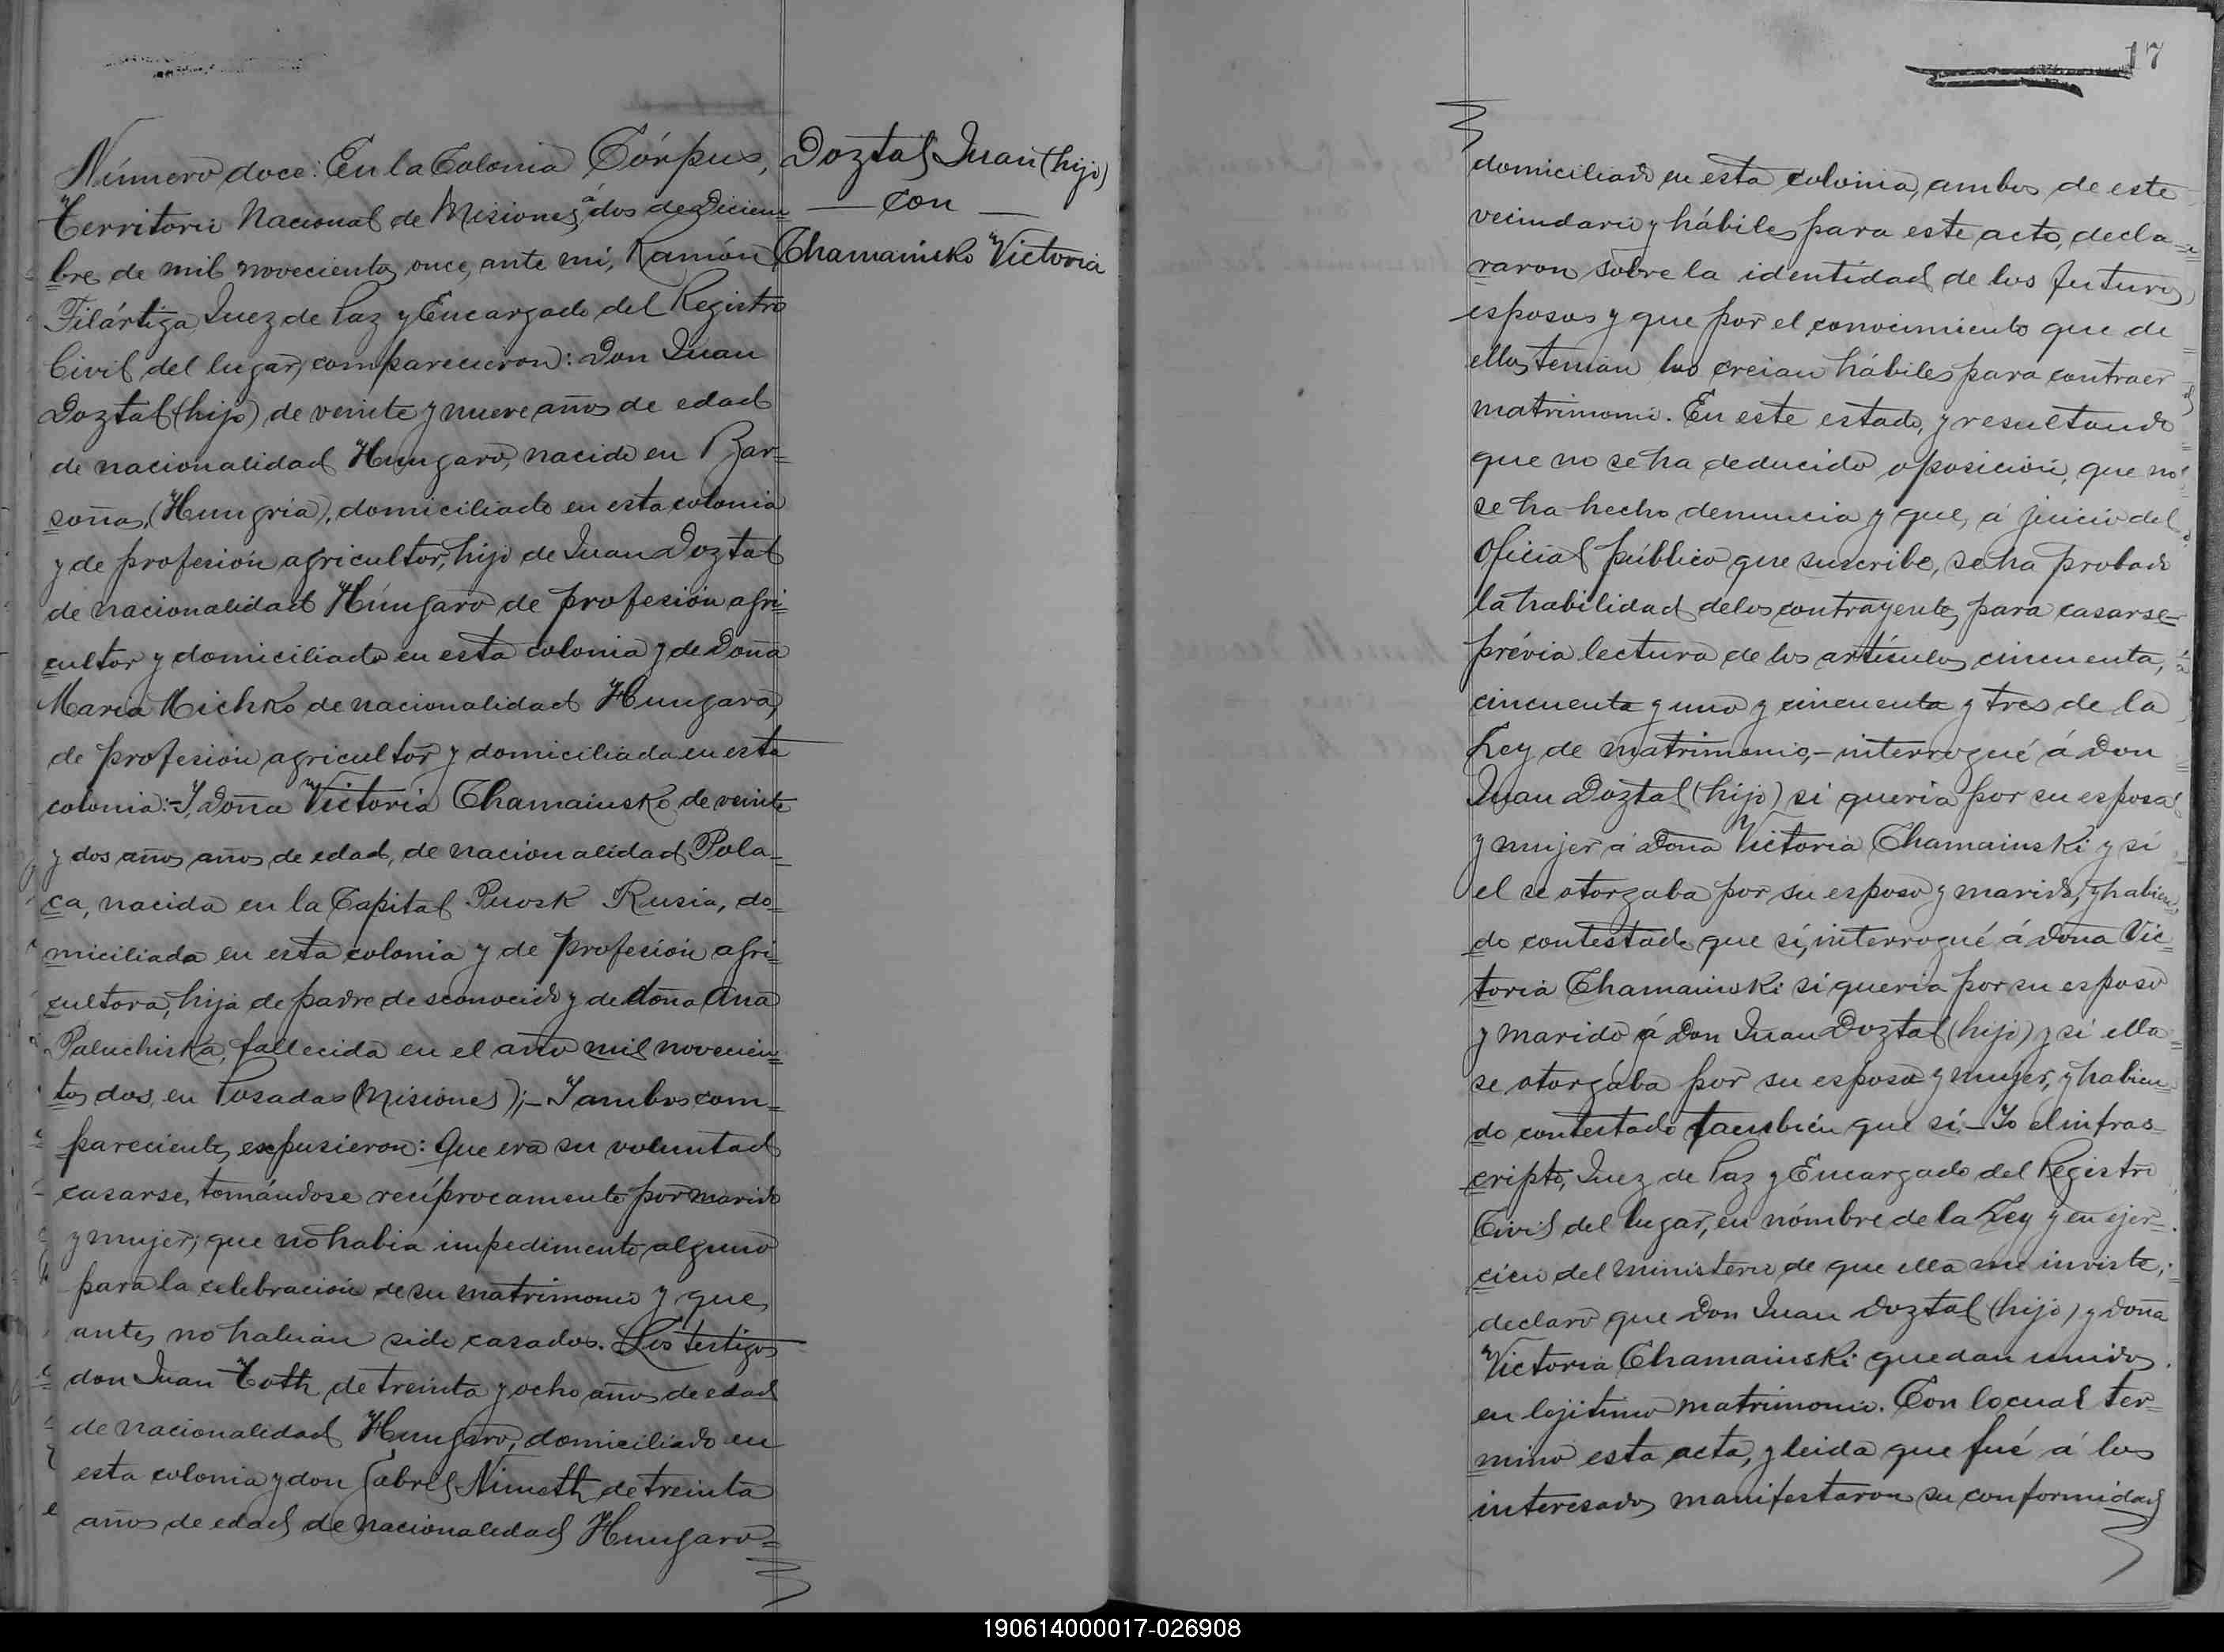 Número doce: En la Colonia Córpus,
Territorio Nacional de Misiones, á dos de Diciem=
bre de mil novecientos once, ante mí, Ramón
Filártiga Juez de Paz y Encargado del Registro
Civil del lugar, comparecieron: Don Juan
Doztal (hijo) de veinte y nueve años de edad
de nacionalidad Hungaro, nacido en Bar=
soña, (Hungria), domiciliado en esta colonia
y de profesión agricultor, hijo de Juan Doztal
de nacionalidad Húngaro de profesión agri=
cultor y domiciliado en esta colonia y de Doña
Maria Michko de nacionalidad Hungara,
de profesión agricultor y domiciliada en esta
colonia:- Y, Doña Victoria Chamainsko de veinte
y dos años años de edad, de nacionalidad Pola=
ca, nacida en la Capital Rusia, do=
miciliada en esta colonia y de profesión agri=
cultora, hija de padre desconocido y de doña Ana
Paluchiska, fallecida en el año mil novecien=
tos dos en Posadas (Misiones);- Y ambos com=
parecientes expusieron: Que era su voluntad
casarse, tomándose recíprocamente por marido
y mujer; que no habia impedimento alguno
para la celebración de su matrimonio y que
antes no habian sido casados. Los testigos
don Juan Toth de treinta y ocho años de edad
de nacionalidad Hungaro, domiciliado en
esta colonia y don Gabriel Nimeth de treinta
años de edad de nacionalidad Hungaro=
Doztal Juan (hijo)
— con —
Chamainsko Victoria
17
domiciliado en esta colonia, ambos de este
vecindario y hábiles para este acto, decla=
raron sobre la identidad de los futuros
esposos y que por el conocimiento que de
ellos tenian los creian hábiles para contraer
matrimonio. En este estado, y resultando
que no se ha deducido oposición, que no
se ha hecho denuncia y que, á juicio del
Oficial público que suscribe, se ha probado
la habilidad de los contrayentes para casarse
prévia lectura de los artículos cincuenta,
cincuenta y uno y cincuenta y tres de la
Ley de matrimonio,- interrogué á Don
Juan Doztal (hijo) si queria por su esposa
y mujer á Doña Victoria Chamainski y si
el se otorgaba por su esposo y marido, y habien=
do contestado que sí, interrogué á Doña Vic=
toria Chamainski si queria por su esposo
y marido á Don Juan Doztal (hijo) y si ella
se otorgaba por su esposa y mujer, y habien=
do contestado tambien que si.- Yo el infras=
cripto, Juez de Paz y Encargado del Registro
Civil del lugar, en nómbre de la Ley y en ejer=
cicio del ministerio de que ella me inviste;
declaro que Don Juan Doztal (hijo) y doña
Victoria Chamainski quedan unidos
en lejitimo matrimonio. Con lo cual ter=
minó esta acta, y leida que fué á los
interesados manifestaron su conformidad
190614000017-026908